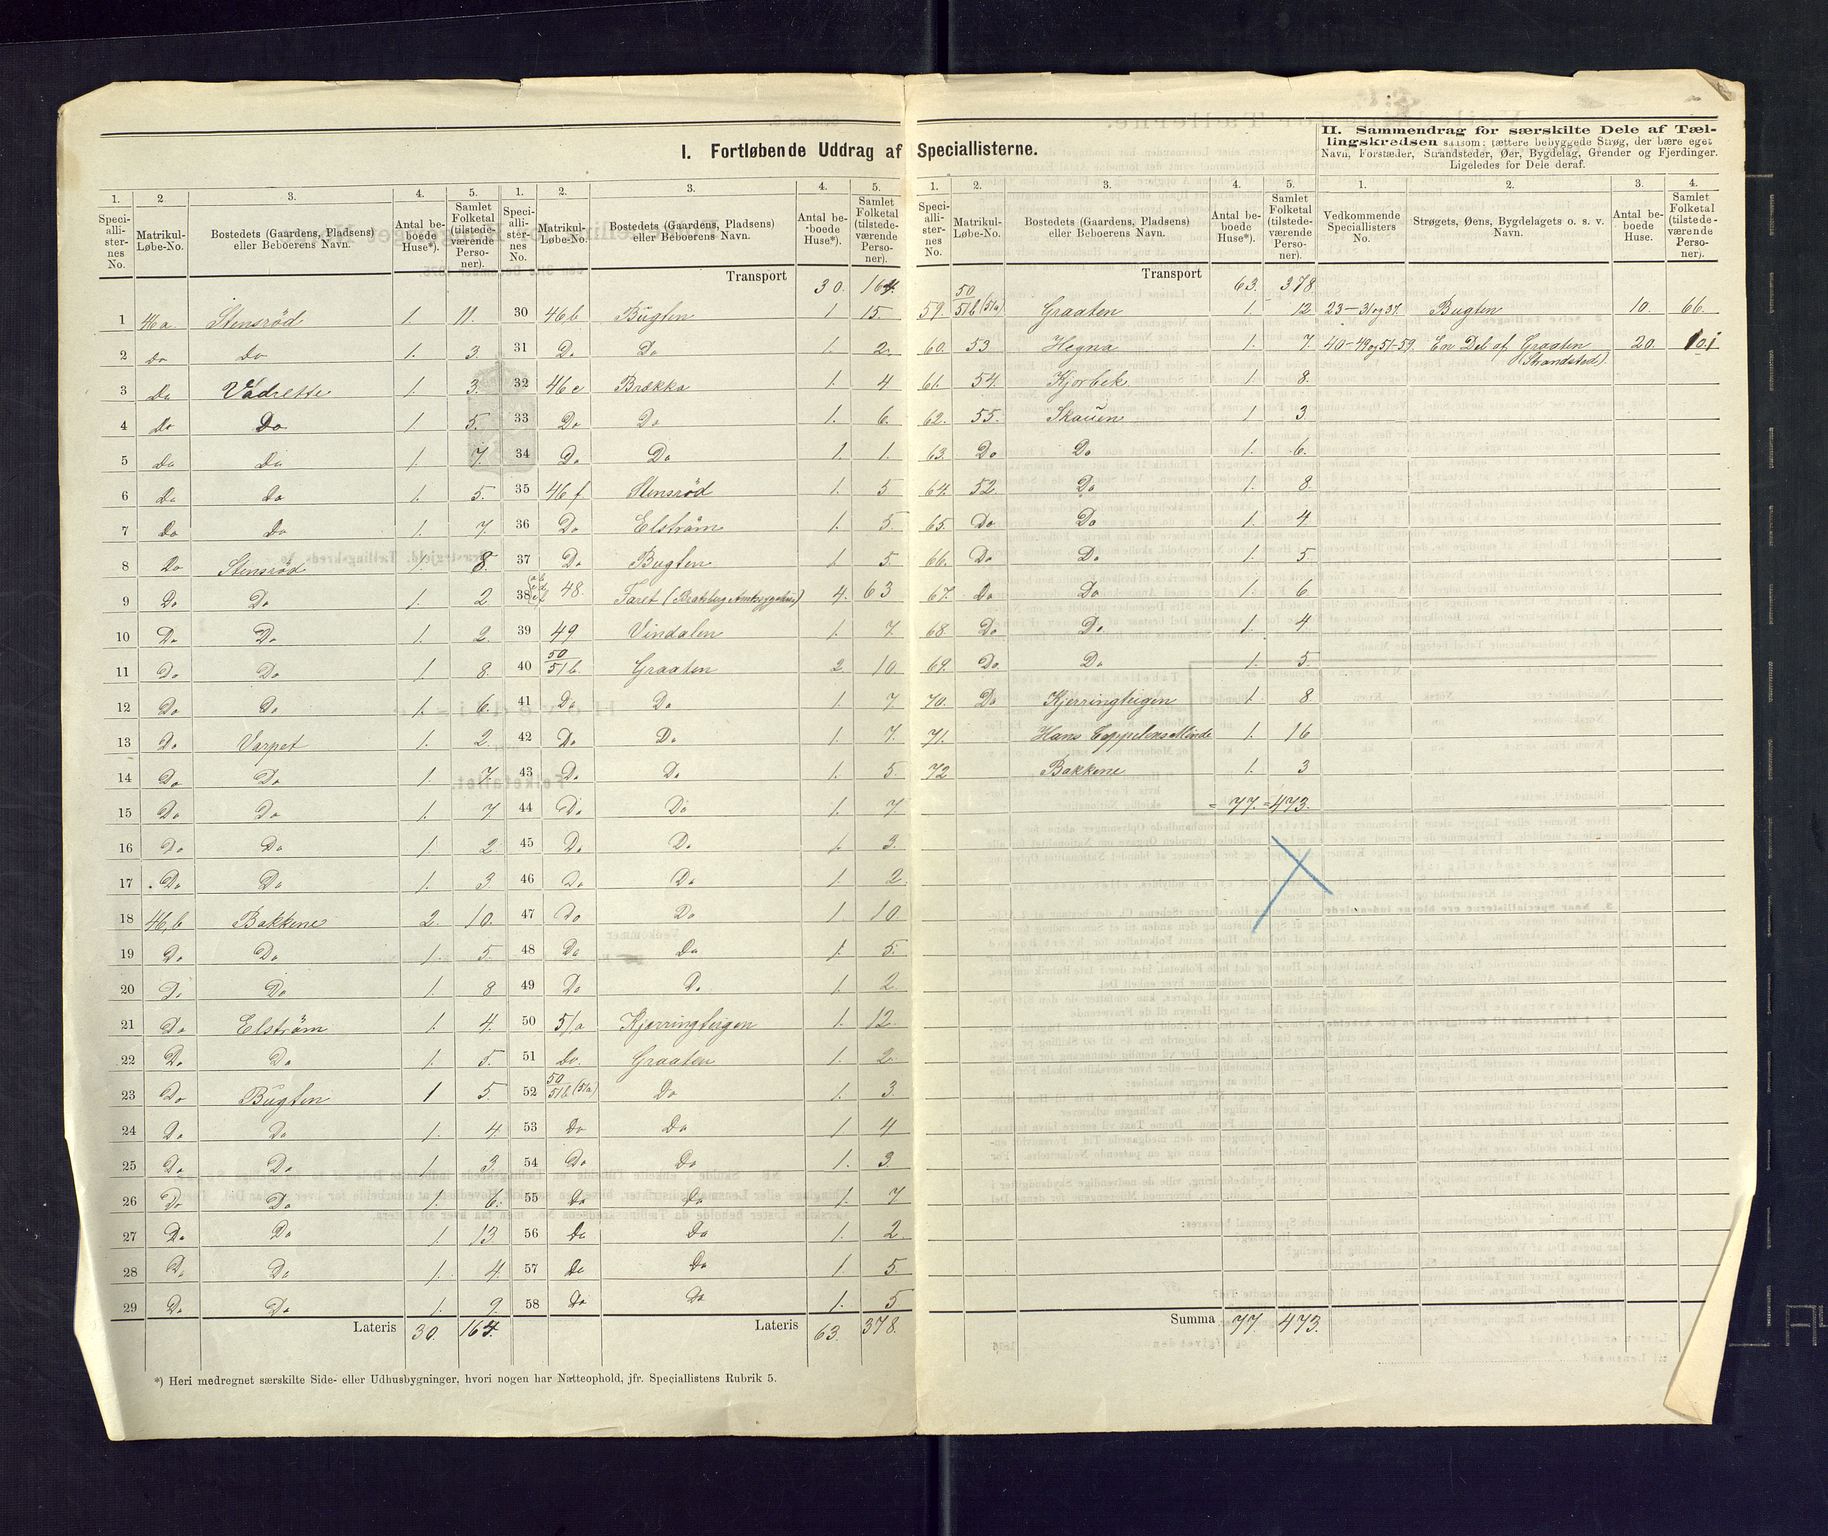 I. Fortløbende Uddrag af Speciallisterne.
II. Sammendrag for særskilte Dele af Tællingskredsen saasom: tættere bebyggede Strøg, der bære eget Navn, Forstæder, Strandsteder, Øer, Bygdelag, Grender og Fjerdinger. Ligeledes for Dele deraf.
1. 2. 3. 4. 5. 1. 2. 3. 4. 5.
Speciallisternes No. Matrikul-Løbe-No. Bostedets (Gaardens, Pladsens) eller Beboerens Navn. Antal beboede Huse*). Samlet Folketal (tilstedeværende Personer). Speciallisternes No. Matrikul-Løbe-No. Bostedets (Gaardens, Pladsens) eller Beboerens Navn. Antal beboede Huse*). Samlet Folketal (tilstedeværende Personer).
Transport 30. 164.
1 46a Stensrød 1. 11. 30 46b Bugten 1 15.
2 Do Do 1. 3. 31 Do Do 1. 2.
3 Do Vadrette 1 3. 32 46e Brækka 1. 4
4 Do Do 1 5. 33 Do Do 1. 6.
5 Do Do 1. 7. 34 Do Do 1. 1.
6 Do Do 1. 5. 35 46f Stensrød 1. 5
7 Do Do 1. 7. 36 Do Elstrøm 1. 5.
8 Do Stensrød 1. 8. 37 Do Bugten 1. 5.
9 Do Do 1. 2. 38 48. Faret (Bratsberg Amtssygehus) 4. 63
10 Do Do 1. 2. 39 49 Vindalen 1. 7.
11 Do Do 1 8. 40 50/51b Graaten 2. 10
12 Do Do 1. 6. 41 Do Do 1. 7
13 Do Varpet 1. 2. 42 Do Do 1. 7.
14 Do Do 1 7. 43 Do Do 1. 5.
15 Do Do 1. 7 44 Do Do 1. 7
16 Do Do 1. 2 45 Do Do 1. 3.
17 Do Do 1. 3 46 Do Do 1 2.
18 46,b Bakkene 2. 10. 47 Do Do 1. 10.
19 Do Do 1. 5. 48 Do Do 1. 5.
20 Do Do 1. 8 49 Do Do 1. 2.
21 Do Elstrøm 1. 4. 50 51a Kjærringteigen 1. 12.
22 Do Do 1. 5. 51 Do. Graaten 1. 2.
23 Do Bugten 1 5. 52 50/51b (51a) Do 1. 3.
24 Do Do 1. 4. 53 Do Do 1 4
25 Do Do 1 3. 54 Do Do 1. 3.
26 Do Do 1. 6. 55 Do Do 1. 7
27 Do Do 1. 13. 56 Do Do 1. 2.
28 Do Do 1. 4. 57 Do Do 1. 5.
29 Do Do 1. 9. 58 Do Do 1. 5
Lateris 30 164. Lateris 63. 378.
*) Heri medregnet særskilte Side- eller Udhusbygninger, hvori nogen har Natteophold, jfr. Speciallistens Rubrik 5.
1. 2. 3. 4. 5. 1. 2. 3. 4.
Speciallisternes No. Matrikul-Løbe-No. Bostedets (Gaardens, Pladsens) eller Beboerens Navn. Antal beboede Huse*). Samlet Folketal (tilstedeværende Personer). Vedkommende Speciallisters No. Strøgets, Øens, Bygdelagets o. s. v. Navn. Antal beboede Huse. Samlet Folketal (tilstedeværende Personer).
Transport 63. 378
59. 50/51b (51a) Graaten 1. 12 23-31 og 37. Bugten 10. 66.
60. 53 Hegna 1. 7. 40-49 og 51-59. En Del af Graaten (Strandsted) 20. 101
61. 54. Kjørbek 1. 8.
62. 55. Skauen 1 3
63. Do Do 1. 6.
64. 52. Do 1. 8.
65. Do Do 1. 4
66. Do Do 1. 5
67. Do Do 1. 6
68. Do Do 1. 4
69. Do. Do 1. 5.
70. Do Kjerringteigen 1. 8
71. Hans Eppelens Minde 1. 16
72 Bakkene 1. 3
= 77. = 473.
Summa 77. 473.